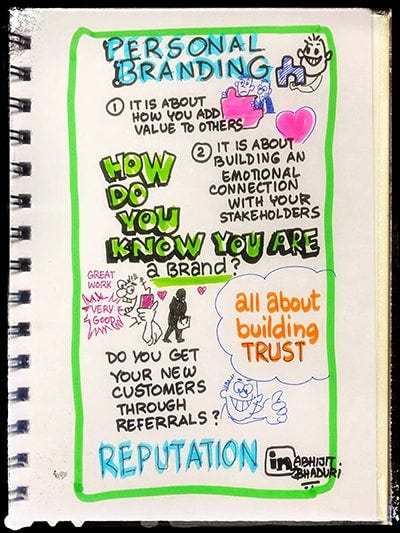 PERSONAL
BRANDING
① IT IS ABOUT
HOW YOU ADD
VALUE TO OTHERS
② IT IS ABOUT
BUILDING AN
EMOTIONAL
CONNECTION
WITH YOUR
STAKEHOLDERS
HOW
DO
YOU
KNOW YOU ARE
a BRAND?
GREAT
WORK
VERY
GOOD
all about
building
TRUST
DO YOU GET
YOUR NEW
CUSTOMERS
THROUGH
REFERRALS?
REPUTATION
in ABHIJIT
BHADURI